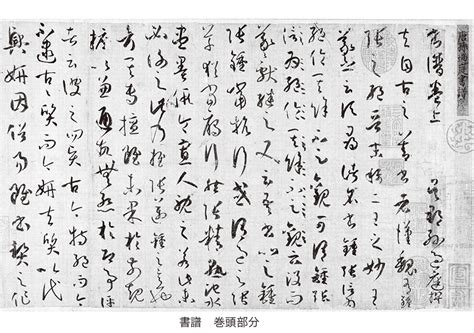 書譜卷上 吳郡孫過庭撰
夫自古之善書者漢魏有
鍾張之絕晉末稱二王之妙王
羲之云頃尋諸名書鍾張信為
絕倫其餘不足觀可謂鍾張
云沒而羲獻繼之又云吾書比之
鍾張鍾當抗行或謂過之張
草猶當鴈行然張精熟池水
盡墨假令寡人耽之若此未
必謝之此乃推張邁鍾之意也
考其專擅雖未果於前規
摭以兼通故無慚於即事評
者云彼之四賢古今特絕而今
不逮古古質而今妍夫質以代
興妍因俗易雖書契之作
書譜　巻頭部分